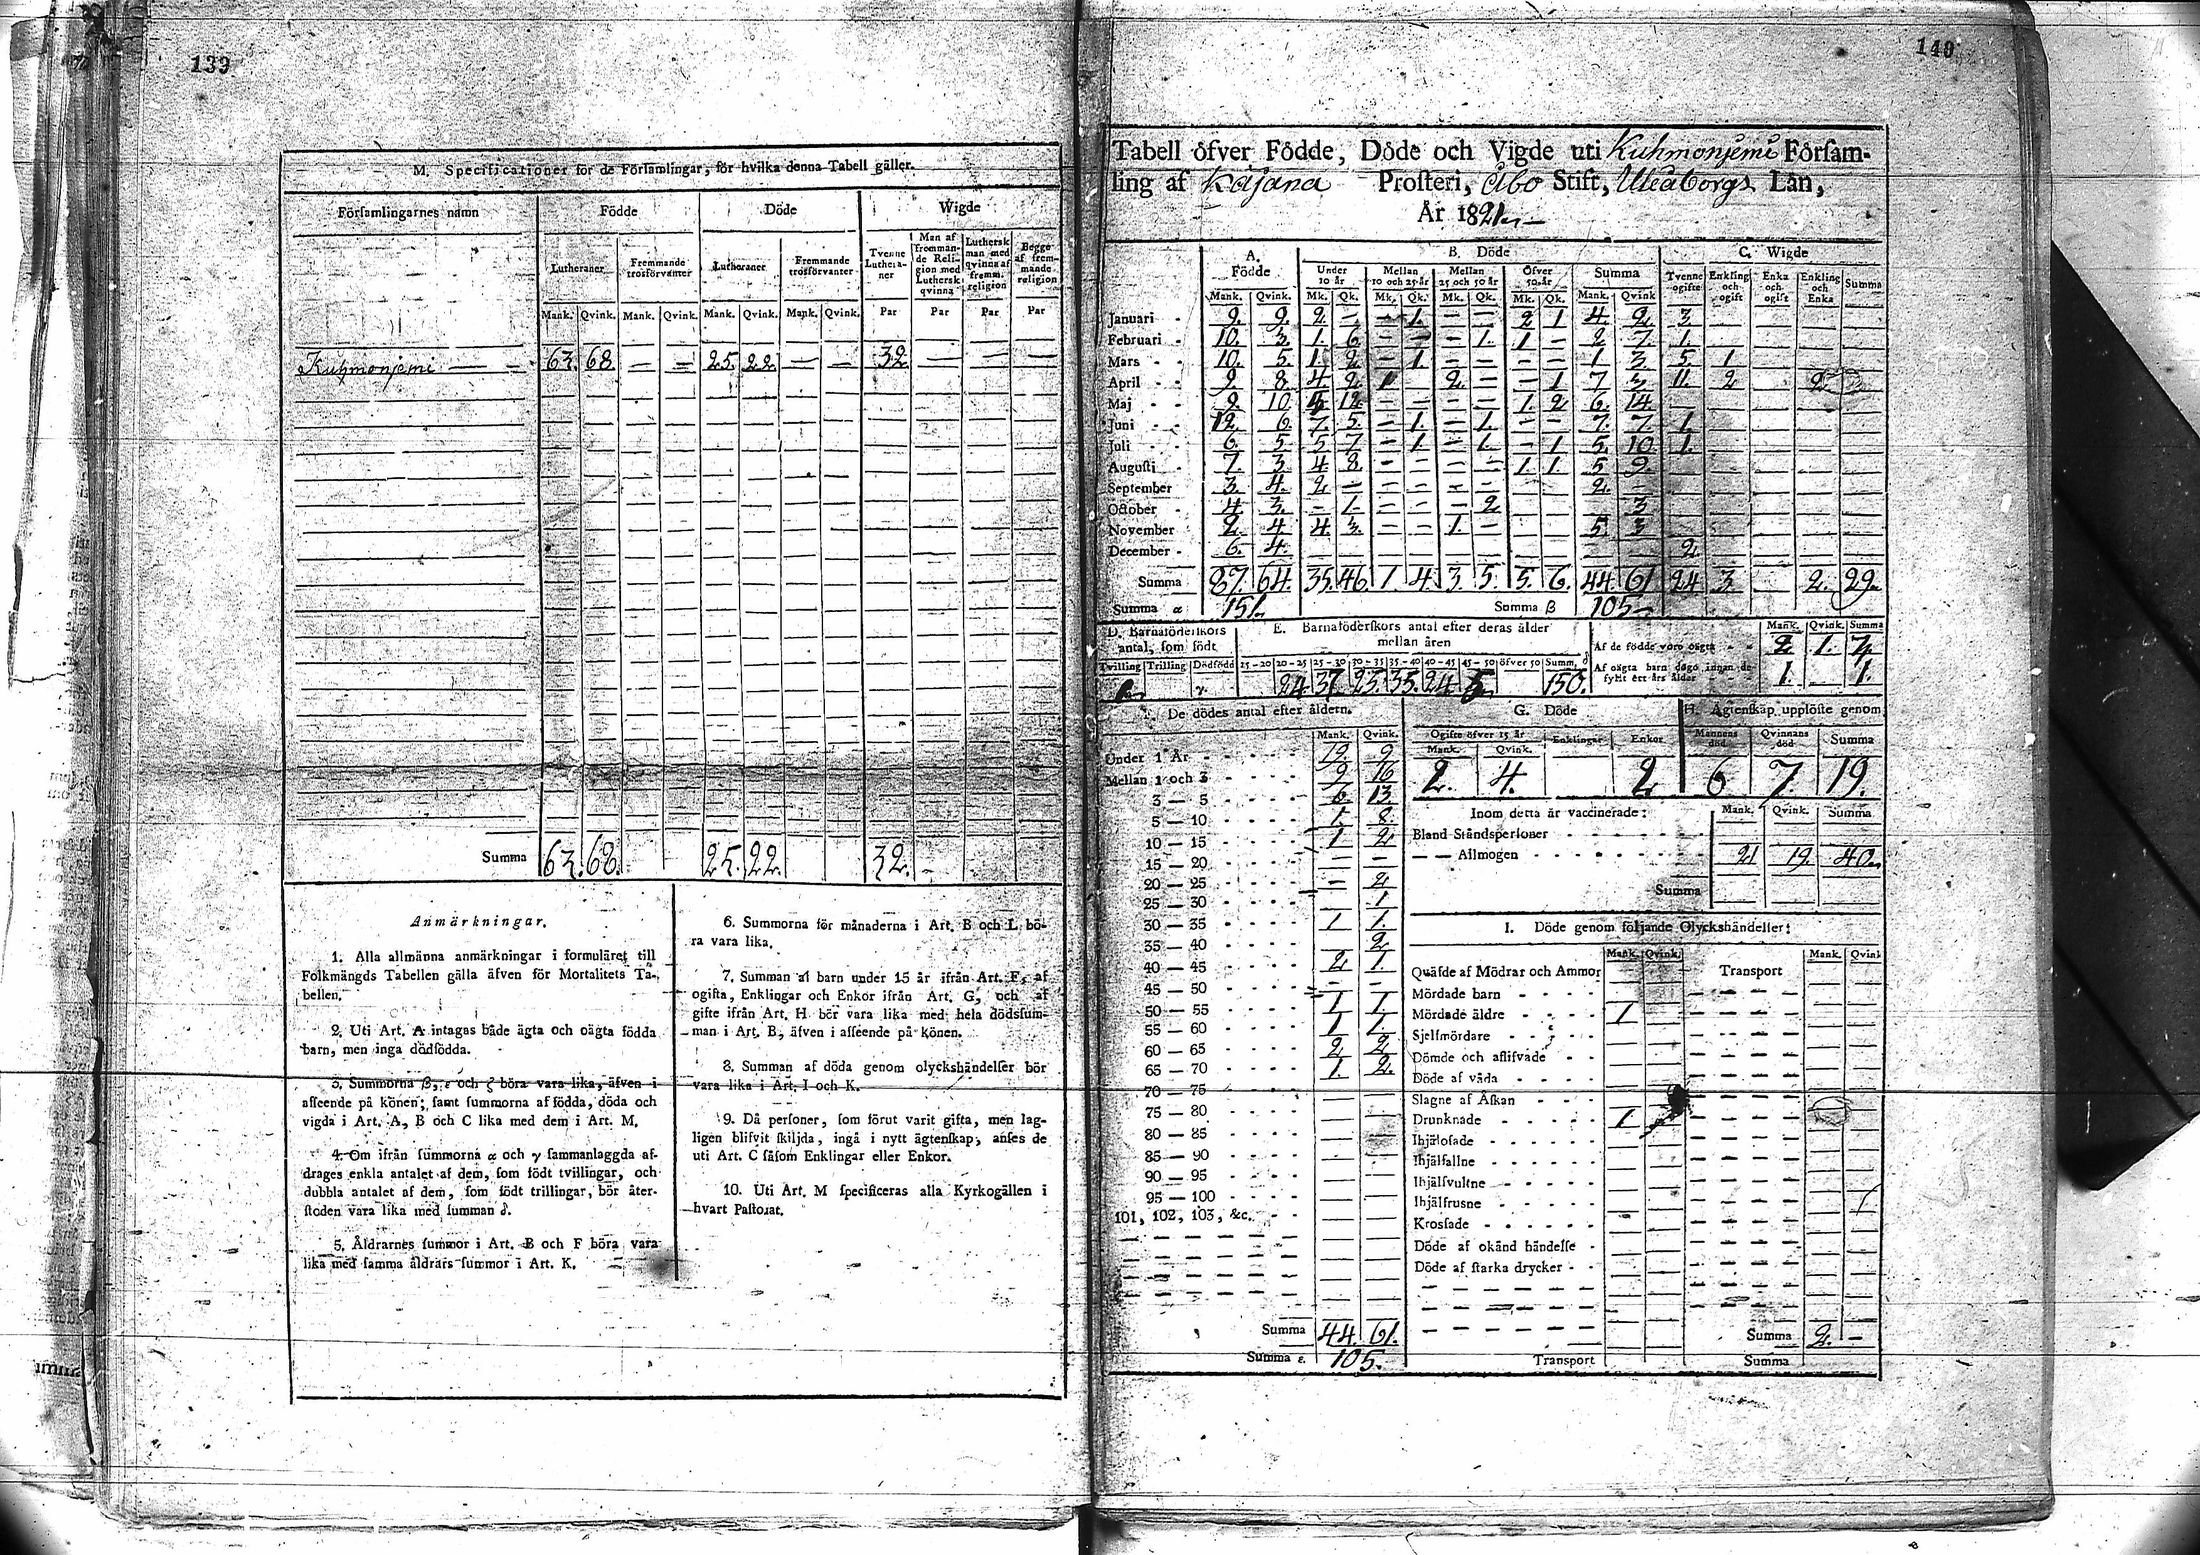 139
M. Specificationer för de Församlingar, för hvilka denna Tabell gäller.
Församlingarnes namn Födde Döde Wigde
Lutheraner Fremmande trosförvanter Lutheraner Fremmande trosförvanter Tvenne Lutheraner Man af fromman-de Reli-gion med Luthersk qvinna Luthersk man med qvinna af fremm. religion Begge af frem-mande religion
Mank. Qvink. Mank. Qvink. Mank. Qvink. Mank. Qvink. Par Par Par Par
Kuhmonjemi 63. 68. — — 25. 22. — — 32. — — —
Summa 63. 68. 25. 22. 32. -
Anmärkningar.
1. Alla allmänna anmärkningar i formuläret till
Folkmängds Tabellen gälla äfven för Mortalitets Ta-
bellen.
2. Uti Art. A intagas både ägta och oägta födda
barn, men inga dödfödda.
3. Summorna β, ε och ζ böra vara lika, äfven i
afseende på könen; samt summorna af födda, döda och
vigda i Art. A, B och C lika med dem i Art. M.
4. Om ifrån summorna α och γ sammanlaggda af-
drages enkla antalet af dem, som födt tvillingar, och
dubbla antalet af dem, som födt trillingar, bör åter-
stoden vara lika med summan δ.
5. Åldrarnes summor i Art. B och F böra vara
lika med samma åldrars summor i Art. K.
6. Summorna för månaderna i Art. B och L bö-
ra vara lika.
7. Summan af barn under 15 år ifrån Art. F, af
ogifta, Enklingar och Enkor ifrån Art. G, och af
gifte ifrån Art. H bör vara lika med hela dödssum-
man i Art. B, äfven i afseende på könen.
8. Summan af döda genom olyckshändelser bör
vara lika i Art. I och K.
9. Då personer, som förut varit gifta, men lag-
ligen blifvit skiljda, ingå i nytt ägtenskap, anses de
uti Art. C såsom Enklingar eller Enkor.
10. Uti Art. M specificeras alla Kyrkogällen i
hvart Pastorat.
140
Tabell öfver Födde, Döde och Vigde uti Kuhmonjemi Försam-
ling af Kajana Prosteri, Åbo Stift, Uleåborgs Län,
År 1821.
A. Födde B. Döde C. Wigde
Under 10 år Mellan 10 och 25 år Mellan 25 och 50 år Öfver 50 år Summa Tvenne ogifte Enkling och ogift Enka och ogift Enkling och Enka Summa
Mank. Qvink. Mk. Qk. Mk. Qk. Mk. Qk. Mk. Qk. Mank. Qvink
Januari - 9. 9. 2. — — 1. — — 2 1 4 2. 3.
Februari - 10. 3. 1. 6 — — — 1. 1 — 2 7. 1.
Mars - - 10. 5. 1. 2 — 1. — — — — 1 3. 5 1
April - - 9. 8. 4. 2. 1 — 2. — — 1 7 3 11. 2 2
Maj - - 9. 10. 5 12. — — — — 1. 2 6. 14.
Juni - - 12. 6. 7. 5. — 1. — 1. — — 7. 7. 1.
Juli - - 6. 5. 5 7 — 1. — 1. — 1 5. 10. 1.
Augusti - 7. 3. 4 8. — — — — 1. 1. 5 9.
September 3. 4. 2 — — — — — 2. —
October - 4 3. — 1. — — — 2 3
November 2. 4 4. 3. — — 1. — 5 3
December - 6. 4. 2
Summa 87. 64. 35. 46. 1. 4. 3. 5. 5. 6. 44. 61 24 3. — 2. 29.
Summa α 151. Summa β 105
D. Barnaföderskors antal, som födt
E. Barnaföderskors antal efter deras ålder mellan åren
Mank. Qvink. Summa
Af de födde voro oägta - - 2 1.
Af oägta barn dogo innan de fyllt ett års ålder - - - 1. — 1.
Tvilling Trilling Dödfödd 15-20 20-25 25-30 30-35 35-40 40-45 45-50 öfver 50 Summ. δ
γ. 24. 37. 25. 35. 24. 5. 150.
F. De dödes antal efter åldern.
Mank. Qvink.
Under 1 År - - - - 19. 9
Mellan 1 och 3 - - - - 9 16
3 — 5 - - - - 6. 13.
5 — 10 - - - - 1. 8.
10 — 15 - - - - 1 2
15 — 20 - - - - — —
20 — 25 - - - - —
25 — 30 - - - - 1
30 — 35 - - - - 1 1.
35 — 40 - - - - 2
40 — 45 - - - - 2 1.
45 — 50 - - - - — —
50 — 55 - - - - 1 1.
55 — 60 - - - - 1 1.
60 — 65 - - - - 2 2
65 — 70 - - - - 1. 2.
70 — 75 - - - -
75 — 80 - - - -
80 — 85 - - - -
85 — 90 - - - -
90 — 95 - - - -
95 — 100 - - - -
101, 102, 103, &c. - -
Summa 44. 61.
Summa ε. 105.
G. Döde
Ogifte öfver 15 år Enklingar Enkor
Mank. Qvink.
2. 4. 2
H. Ägtenskap upplöste genom
Mannens död Qvinnans död Summa
6 7.
Inom detta år vaccinerade: Mank. Qvink. Summa
Bland Ståndspersoner - - - -
— — Allmogen - - - - 21 19. 40.
Summa
I. Döde genom följande Olyckshändelser:
Mank. Qvink. Mank. Qvink
Quäfde af Mödrar och Ammor Transport
Mördade barn - - - -
Mördade äldre - - - - 1
Sjelfmördare - - - -
Dömde och aflifvade - -
Döde af våda - - - -
Slagne af Åskan - - -
Drunknade - - - - - 1
Ihjälosade - - - - -
Ihjälfallne - - - - -
Ihjälsvultne - - - - -
Ihjälfrusne - - - - -
Krossade - - - - - -
Döde af okänd händelse -
Döde af starka drycker - -
Summa 2. —
Transport Summa